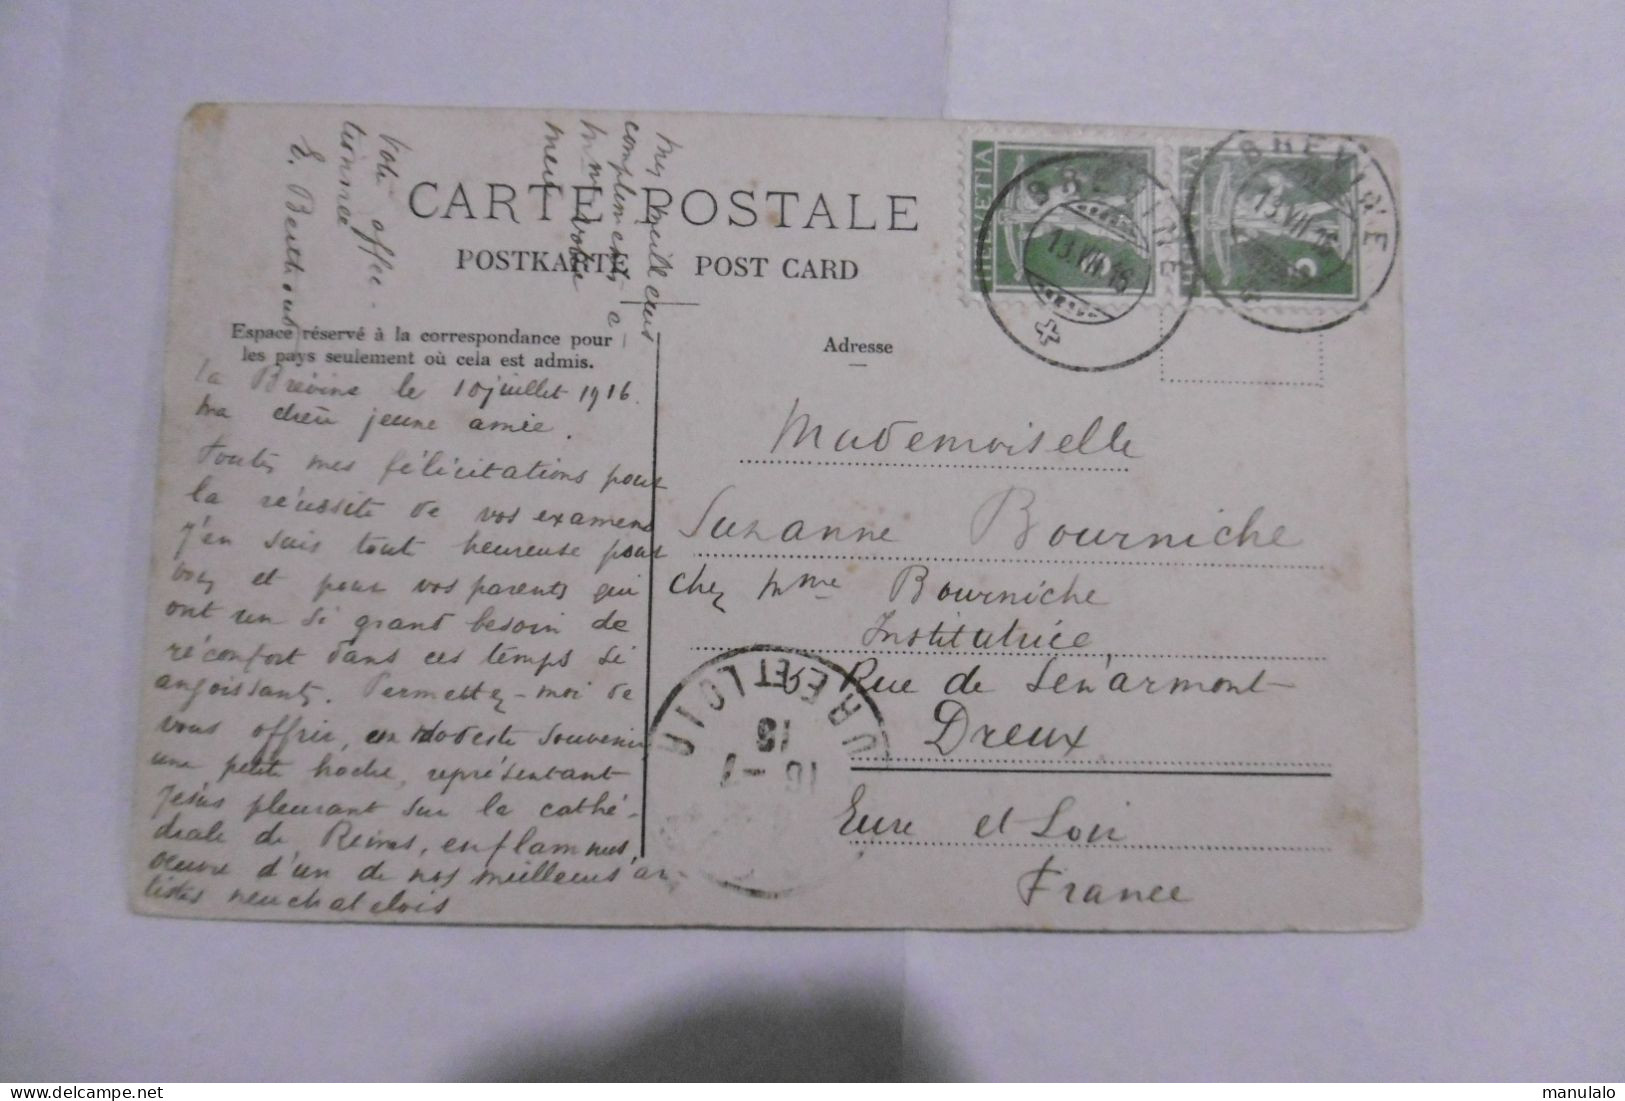 CARTE POSTALE
POSTKARTE POST CARD
Espace réservé à la correspondance pour
les pays seulement où cela est admis.
Adresse
HELVETIA
5
BREVINE
13.VII.16
HELVETIA
5
BREVINE
13.VII.16
La Brévine le 10 juillet 1916.
Ma chère jeune amie.
Toutes mes félicitations pour
la réussite de vos examens
j'en suis tout heureuse pour
vous et pour vos parents qui
ont un si grand besoin de
réconfort dans ces temps si
angoissants. Permettez-moi de
vous offrir, en modeste souvenir
une petite broche, représentant
Jésus pleurant sur la cathé-
drale de Reims, en flammes,
oeuvre d'un de nos meilleurs ar-
tistes neuchatelois
Mes meilleurs
compliments a
votre
Votre affec-
tionnée
E. Berthoud
Mademoiselle
Suzanne Bourniche
chez Mme Bourniche
Institutrice
Rue de Senarmont
Dreux
Eure et Loir
France
EURE ET LOIR
16-7
16
manulalo